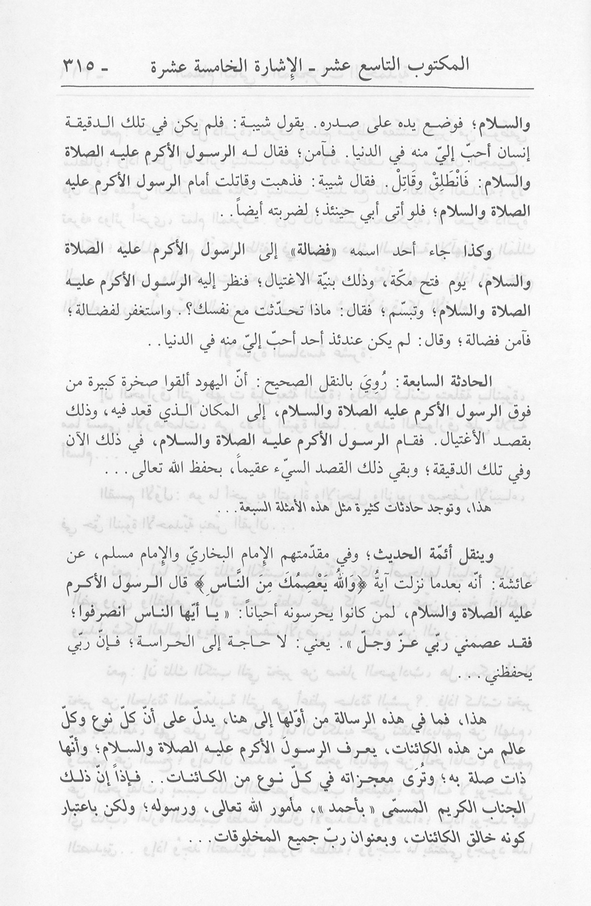 المكتوب التاسع عشر ـ الإشارة الخامسة عشرة ـ ٣١٥
والسلام؛ فوضع يده على صدره. يقول شيبة: فلم يكن في تلك الدقيقة
إنسان أحبّ إليّ منه في الدنيا. فـآمن؛ فقال لـه الرسـول الأكرم عليـه الصلاة
والسلام: فَانْطَلِقْ وقَاتِلْ. فقال شيبة: فذهبت وقاتلت أمام الرسول الأكرم عليه
الصلاة والسلام؛ فلو أتى أبي حينئذ؛ لضربته أيضاً..
وكذا جاء أحد اسمه «فضالة» إلى الرسول الأكرم عليه الصلاة
والسلام، يوم فتح مكّة، وذلك بنيّة الاغتيال؛ فنظر إليه الرسـول الأكرم عليـه
الصلاة والسلام؛ وتبسّم؛ فقال: ماذا تحدّثت مع نفسك؟. واستغفر لفضالة؛
فآمن فضالة؛ وقال: لم يكن عندئذ أحد أحبّ إليّ منه في الدنيا..
الحادثة السابعة: رُوِيَ بالنقل الصحيح: أنّ اليهود ألقوا صخرة كبيرة من
فوق الرسول الأكرم عليه الصلاة والسلام، إلى المكان الـذي قعد فيه، وذلك
بقصد الأغتيال. فقـام الرسـول الأكرم عليـه الصـلاة والسلام، في ذلك الآن
وفي تلك الدقيقة؛ وبقي ذلك القصد السيّء عقيماً، بحفظ الله تعالى...
هذا، وتوجد حادثات كثيرة مثل هذه الأمثلة السبعة...
وينقل أئمّة الحديث؛ وفي مقدّمتهم الإمام البخاريّ والإمام مسلم، عن
عائشة: أنّه بعدما نزلت آيةُ ﴿وَاللهُ يَعْصِمُكَ مِنَ النَّاسِ﴾ قال الـرسول الأكـرم
عليه الصلاة والسلام، لمن كانوا يحرسونه أحياناً: «يـا أيّها الناس انصرفوا؛
فقـد عصمني ربّي عـزّ وجـلّ». يعني: لا حـاجـة إلى الحـراسـة؛ فـإنّ ربّي
يحفظني...
هذا، فما في هذه الرسالة من أوّلها إلى هنا، يدلّ على أنّ كلّ نوع وكلّ
عالم من هذه الكائنات، يعـرف الرسولَ الأكرم عليـه الصلاة والسلام؛ وأنّها
ذات صلة به؛ وتُرَى معجـزاته في كـلّ نـوع من الكـائنـات.. فـإذاً إنّ ذلـك
الجناب الكريم المسمّى «بأحمد»، مأمور الله تعالى، ورسوله؛ ولكن باعتبار
كونه خالق الكائنات، وبعنوان ربّ جميع المخلوقات...